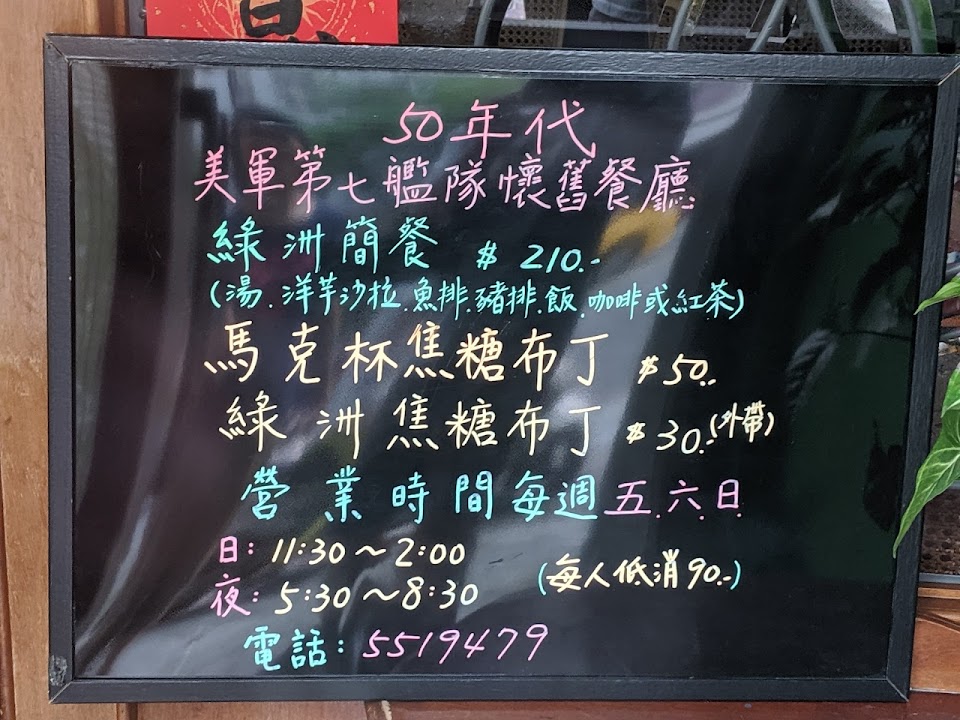 50年代
美軍第七艦隊懷舊餐廳
綠洲簡餐 $ 210.-
(湯.洋芋沙拉.魚排.豬排.飯.咖啡或紅茶)
馬克杯焦糖布丁 $50..
綠洲焦糖布丁 $30.-(外帶)
營業時間每週五.六.日
日:11:30～2:00
夜:5:30～8:30 (每人低消90.-)
電話:5519479